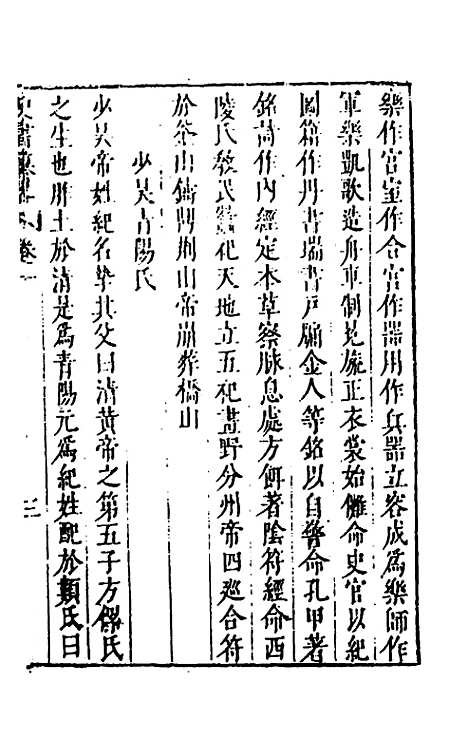 樂作宮室作合宮作器用作兵器立容成為樂師作
軍樂凱歌造舟車制冕旒正衣裳始儺命史官以紀
國籍作丹書瑞書戸牖金人等銘以自警命孔甲著
銘詩作內經定本草察脉息處方餌著陰符經命西
陵氏敎民蠶祀天地立五祀畫野分州帝四廵合符
於釡山鑄鼎荆山帝崩葬橋山
少昊青陽氏
少昊帝姓紀名摯其父曰清黄帝之第五子方儽氏
之生也胙土於清是為青陽元為紀姓配於類氏曰
史書纂畧 卷一 三